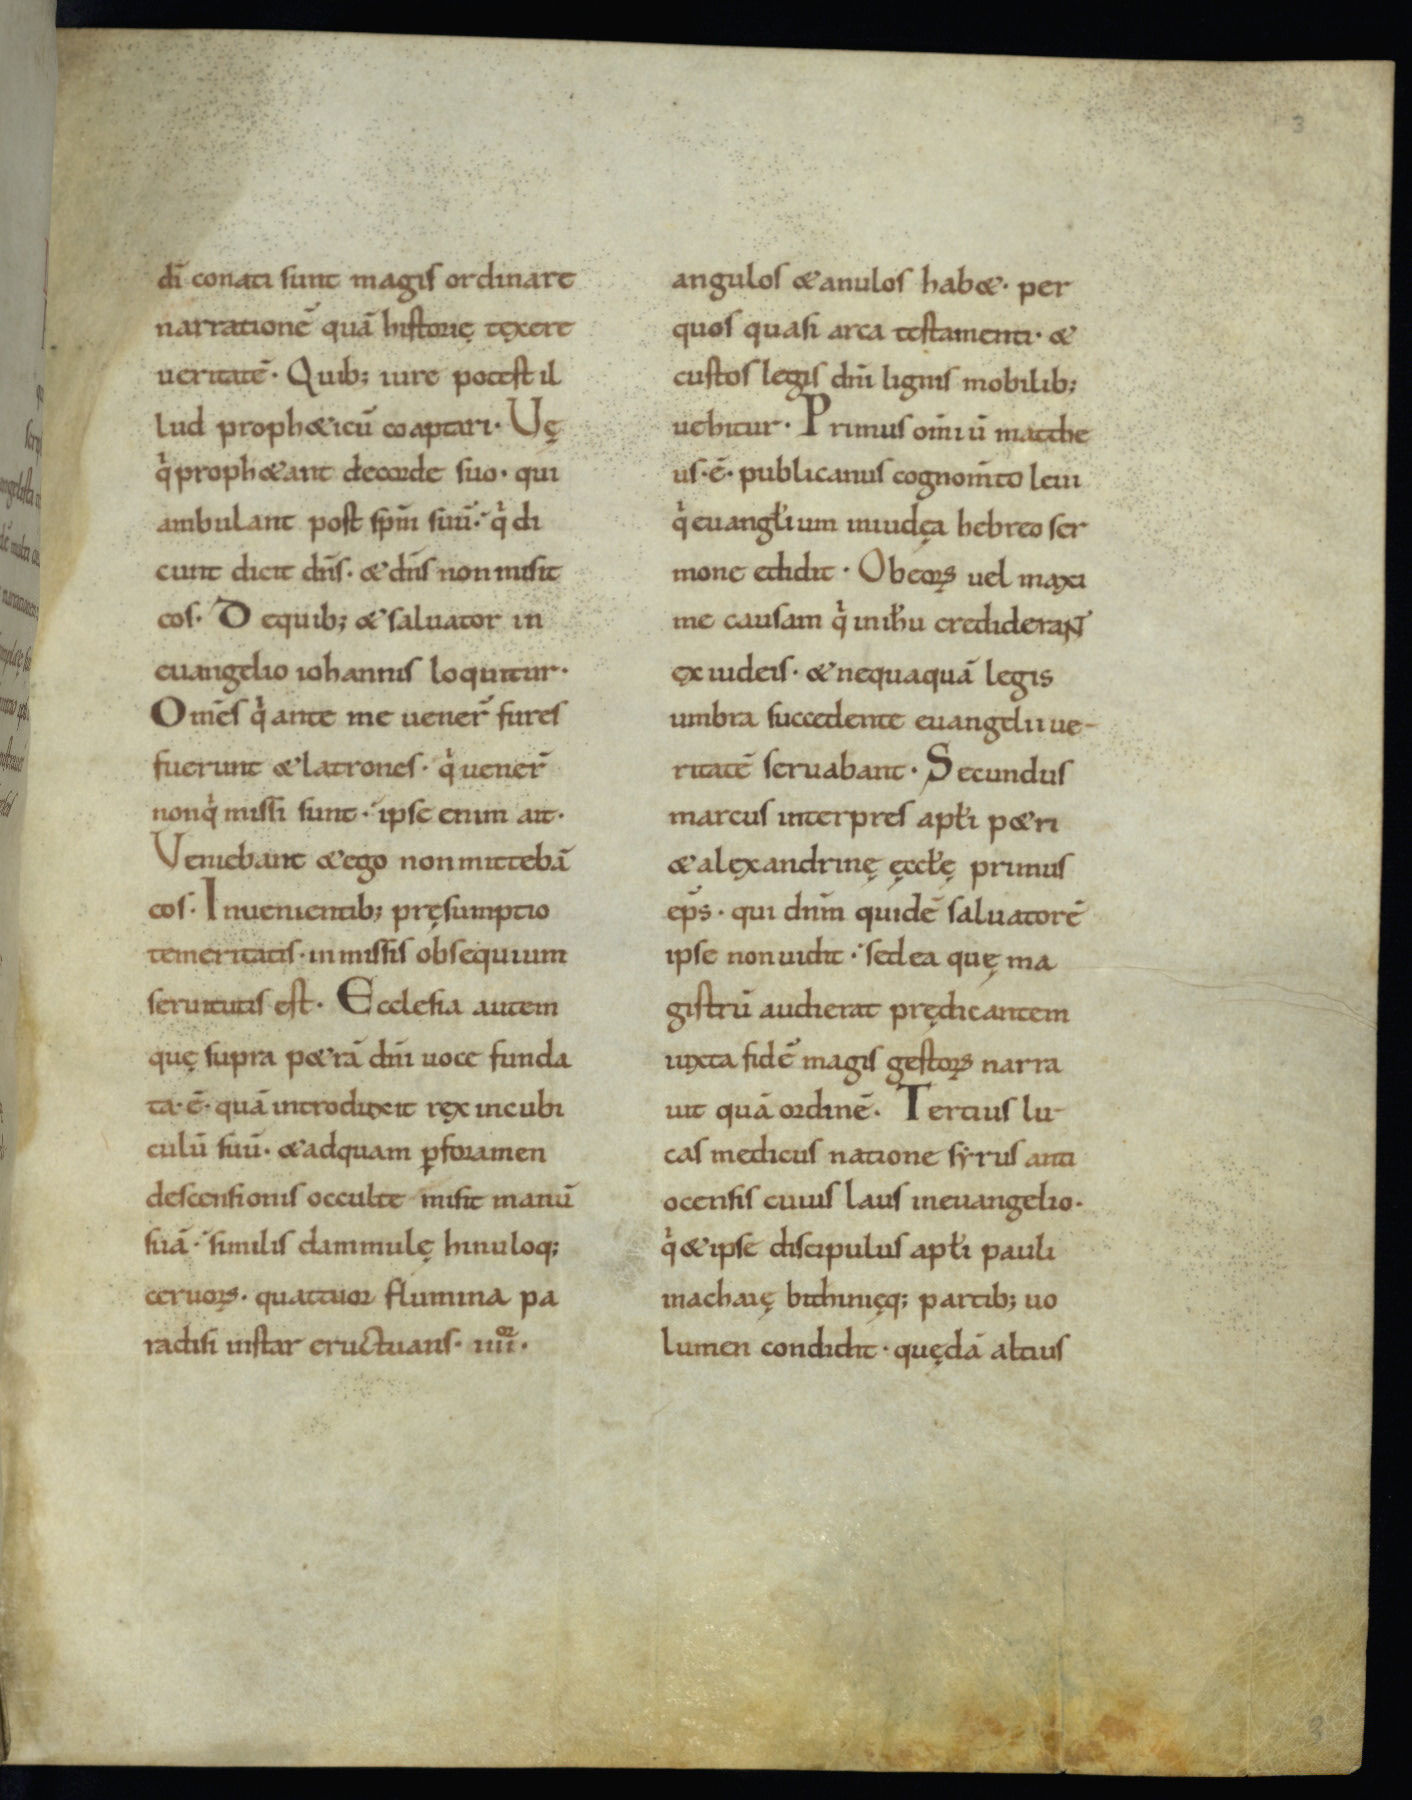 di conati sunt magis ordinare
narrationē quā historię tęxere
ueritatē. Quib; iure potest il
lud proph&icū coaptari. Uę
q̇ proph&ant decorde suo. qui
ambulant post sp̄m suū. q̇ di
cunt dicit dn̄s. & dn̄s non misit
eos. De quib; & saluator in
euangelio iohannis loquitur.
Om̄es q̇ ante me uener̄ fures
fuerunt & latrones. q̇ uener̄
non q̇ missi sunt. ipse enim ait.
Veniebant & ego non mittebā
eos. Inuenientib; pręsumptio
temeritatis. inmissis obsequium
seruitutis est. Ecclesia autem
quę supra p&rā dn̄i uoce funda
ta.ē. quā introduxit ręx incubi
culū suū. & adquam ꝑforamen
descensionis occulte misit manū
suā. similis dammulę hinuloq;
ceruoꝝ. quattuor flumina pa
radisi instar eructuans. iiiior.
angulos & anulos hab&. per
quos quasi arca testamenti. &
custos legis dn̄i lignis mobilib;
uehitur. Primus om̄iū mathe
us.ē. publicanus cognom̄to leui
q̇ euangłium iniudęa hebreo ser
mone edidit. Ob eoꝝ uel maxi
me causam q̇ inih̄u crediderant
ęx iudeis. & nequaquā legis
umbra succedente euangelii ue-
ritatē seruabant. Secundus
marcus interpres apłi p&ri
& alęxandrinę ęccłę primus
ep̄s. qui dn̄m quidē saluatorē
ipse non uidit. sed ea quę ma
gistrū audierat prędicantem
iuxta fidē magis gestoꝝ narra
uit quā ordinē. Tertius lu-
cas medicus natione syrus anti
ocensis cuius laus ineuangelio.
q̇ & ipse discipulus apłi pauli
inachaię bithinięq; partib; uo
lumen condidit. quędā altius
3
3